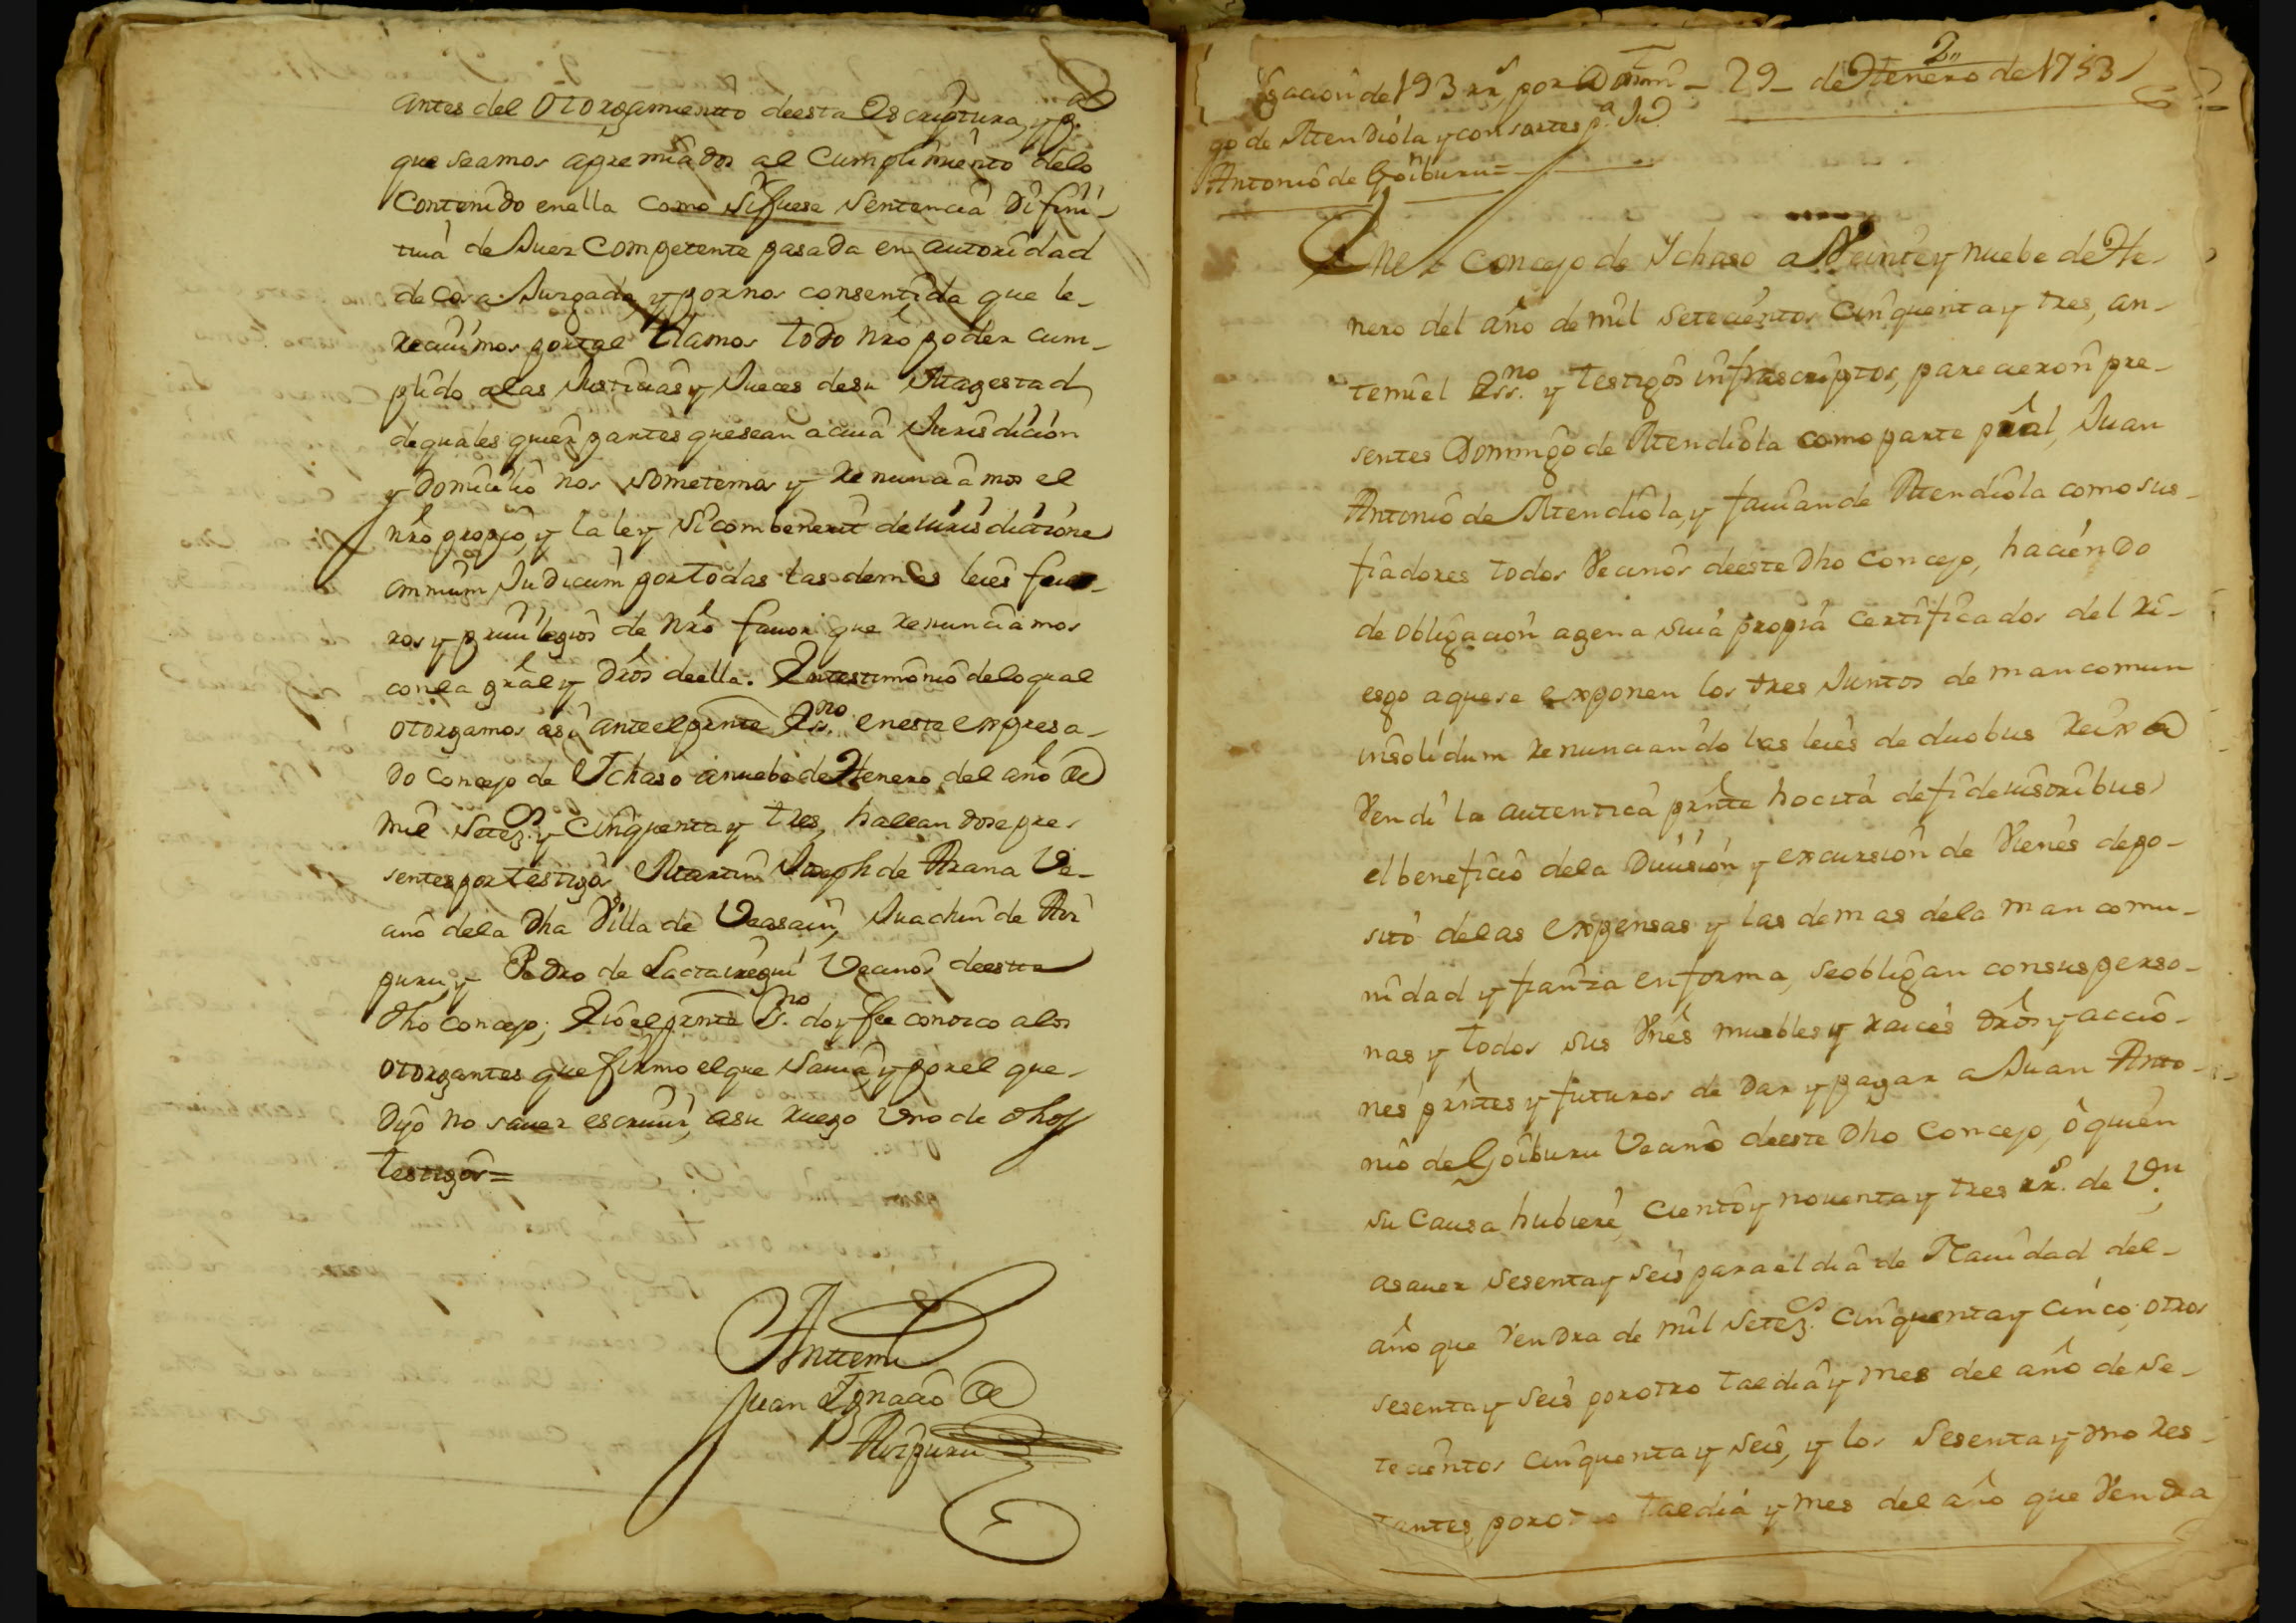 antes del otorgamiento deesta Escriptura, y pª.
que seamos apremiados al cumplimiento delo
contenido enella como si fuese sentencia difini-
tiua de Juez competente pasada en autoridad
de cosa Juzgada, y por nos consentida que le-
reciuimos por tal damos todo nrô poder cum-
plido alas Justicias y Jueces desu Magestad
dequales quier partes quesean acuia Jurisdición
y domicilio nos sometemos y renunciamos el
nrô propio, y la ley sicombenerit de Jurisdictione
omnium Judicum por todas las demas leies fue-
ros y priuilegios de nrô fauor que renunciamos
conla grâl y drôs deella. En testimonio delo qual
otorgamos asi anteel prnte Essno. eneste expresa-
do Concejo de Ichaso anuebe de Henero del año de
mil setezs. y cinquenta y tres, hallandose pre-
sentes por testigos Martin Joseph de Arana Ve-
cino dela dha Villa de Veasain, Juachin de Aiz
puru, y Pedro de Lactairegui Vecinos deeste
dho Concejo; E Io el prnte Esno. doy fee conozco alos
otorgantes que firmo elque sauia, y porel que
dijo no sauer escriuir, asu ruego Vno de dhos
testigos=
Anttemi
Juan Ignacio de
Aizpuru
2,,
gacion de 193 rrs por Domin- 29_ de Henero de 1753
go de Mendiola y consortes pª. Jun.
Antonio de Goiburu=
Enel Concejo de Ichaso a Veinte y nuebe de He-
nero del año de mil setecientos cinquenta y tres, an-
temi el Essno. y testigos infrascriptos, parecieron pre-
sentes Domingo de Mendiola como parte prâl, Juan
Antonio de Mendiola, y fauian de Mendiola como sus
fiadores todos Vecinos deeste dho Concejo, haciendo
de obligacion agena suia propia certificados del ri-
esgo aquese exponen los tres Juntos de mancomun
insolidum renunciando las leies de duobus reix de
Vendi la autentica prnte hocita defideiusoribus
el beneficio dela Diuision y excursion de Vienes depo-
sito delas expensas y las demas dela mancomu-
nidad y fianza en forma, se obligan consus perso-
nas y todos sus Vnes muebles y raices drôs y accio-
nes prntes y futuros de dar y pagar a Juan Anto-
nio de Goiburu Vecino deeste dho Concejo, ô quien
su causa hubiere, ciento y nouenta y tres rrs. de Vn.
asauer sesenta y seis para el dia de Nauidad del-
año que Vendra de mil setezs. cinquenta y cinco; otros
sesenta y seis por otro tal dia y mes del año de se-
tecientos cinquenta y seis, y los sesenta y vno res-
tantes por otro tal dia y mes del año que Vendra